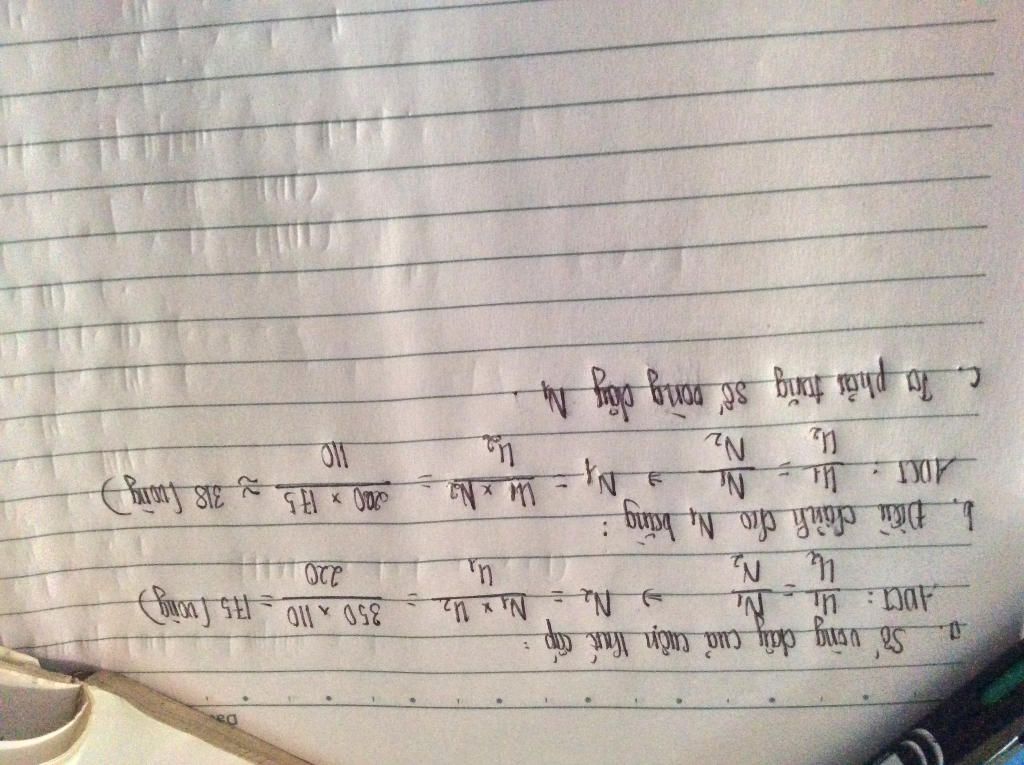 Da
a. Số vòng dây của cuộn thứ cấp :
ADCT: U1/U2 = N1/N2 ⇒ N2 = N1 × U2/U1 = 350 × 110/220 = 175 (vòng)
b. Điều chỉnh cho N1 bằng :
ADCT : U1/U2 = N1/N2 ⇒ N1 = U1 × N2/U2 = 200 × 175/110 ≈ 318 (vòng)
c. Ta phải tăng số vòng dây N1 .